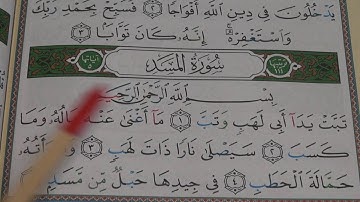 يَدْخُلُونَ فِي دِينِ اللَّهِ أَفْوَاجًا ٢ فَسَبِّحْ بِحَمْدِ رَبِّكَ
وَاسْتَغْفِرْهُ ۚ إِنَّهُ كَانَ تَوَّابًا ٣
سُورَةُ الْمَسَدِ
بِسْمِ اللَّهِ الرَّحْمَٰنِ الرَّحِيمِ
تَبَّتْ يَدَا أَبِي لَهَبٍ وَتَبَّ ١ مَا أَغْنَىٰ عَنْهُ مَالُهُ وَمَا
كَسَبَ ٢ سَيَصْلَىٰ نَارًا ذَاتَ لَهَبٍ ٣ وَامْرَأَتُهُ
حَمَّالَةَ الْحَطَبِ ٤ فِي جِيدِهَا حَبْلٌ مِّن مَّسَدٍ